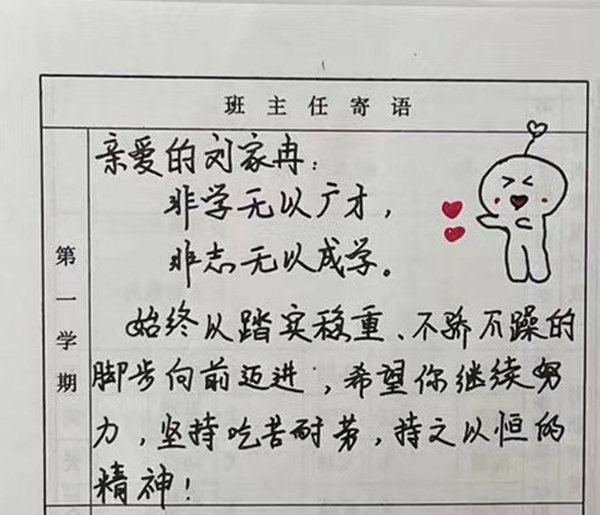 班主任寄语
第一学期
亲爱的刘家冉：
非学无以广才，
非志无以成学。
始终以踏实稳重、不骄不躁的
脚步向前迈进，希望你继续努
力，坚持吃苦耐劳，持之以恒的
精神！